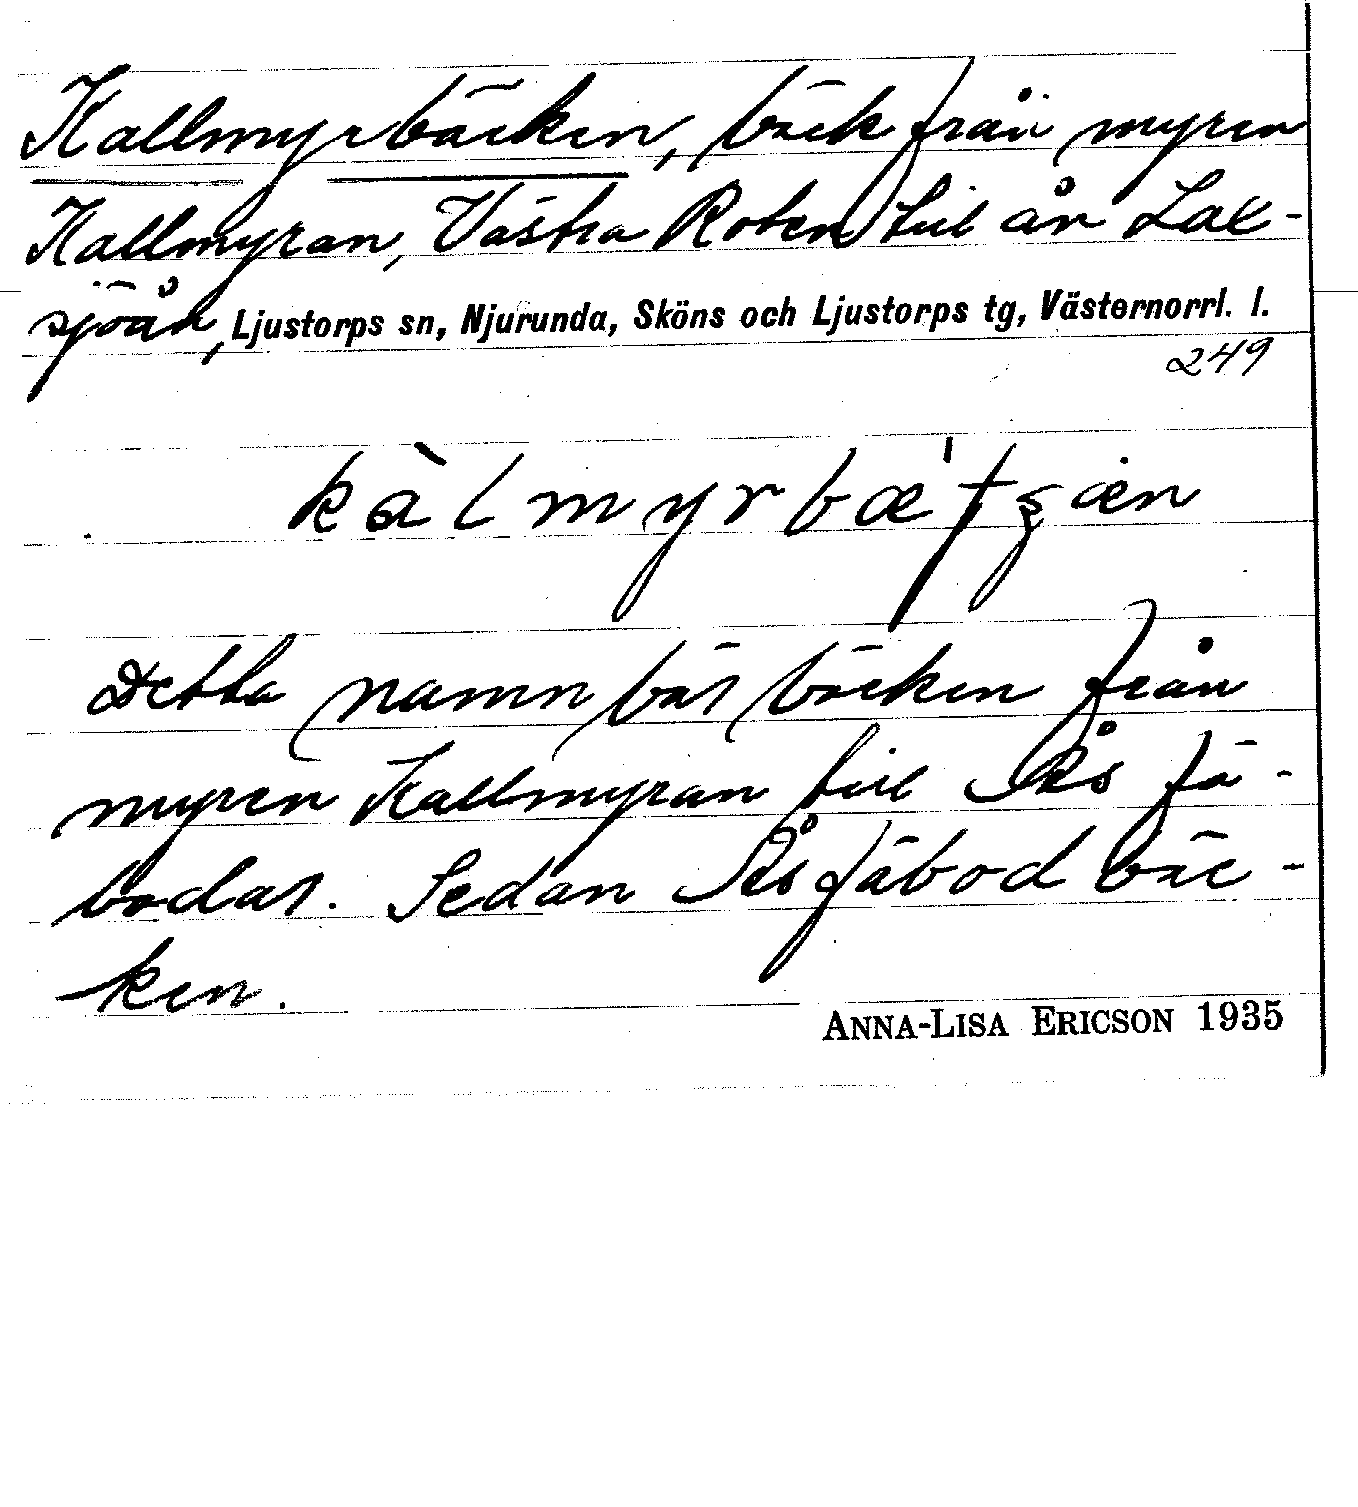 Kallmyrbäcken, bäck från myren
Kallmyran, Västra Roten till ån Lax-
sjöån, Ljustorps sn, Njurunda, Sköns och Ljustorps tg, Västernorrl. l.
249
kàlmyrbæ'tşæn
Detta namn bär bäcken från
myren Kallmyran till Ås fä-
bodar. Sedan Åsfäbodbäc-
ken.
ANNA-LISA ERICSON 1935